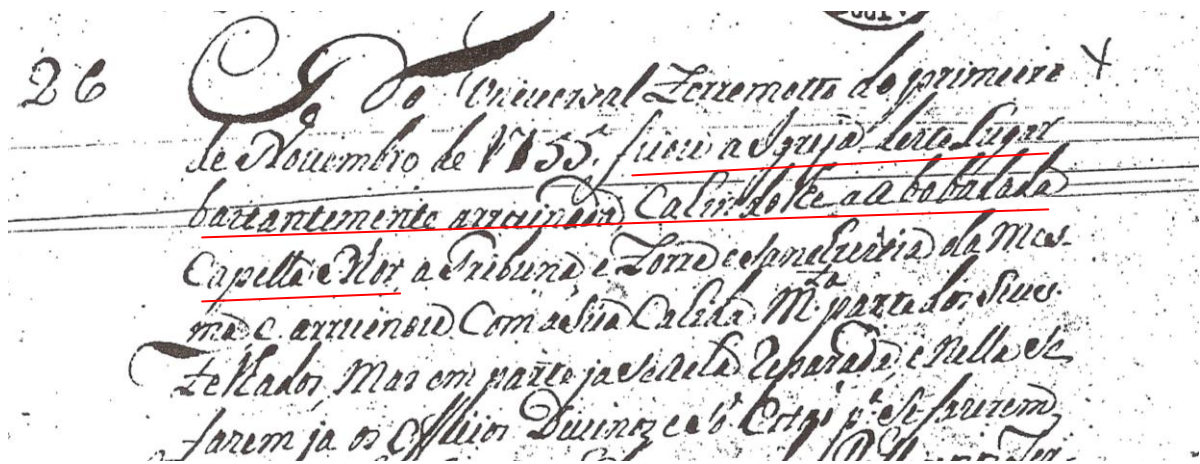 26 Do Vniuersal Terremotto do primeiro X
de Nouembro de 1755. ficou a Igreja deste Lugar
bastantemente arruinada, Calindolhe a abobada da
Capella Mor, a Tribuna, e Torre e Sanchristia da mes-
ma, e arruinou Com a Sua Calida M.ta parte dos Seus
Telhados, Mas em parte ja Se acha Reparada, e Nella Se
fazem ja os Officios Diuinos e